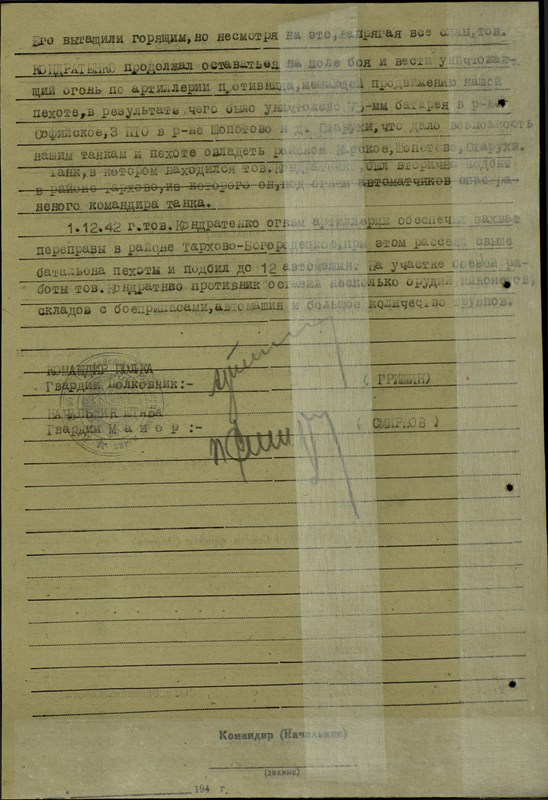 Его вытащили горящим, но несмотря на это, напрягая все силы, тов.
КОНДРАТЕНКО продолжал оставаться на поле боя и вести уничтожаю-
щий огонь по артиллерии противника, мешающей продвижению нашей
пехоте, в результате чего было уничтожено 75-мм батарея в р-не
Софийское, 3 ПТО в р-не Шопотово и д. Старухи, что дало возможность
нашим танкам и пехоте овладеть районом Шопотово, Старухи.
Танк, в котором находился тов. Кондратенко, был вторично подбит
в районе Тархово, из которого он, под огнем автоматчиков спас ра-
неного командира танка.
1.12.42 г. тов. Кондратенко огнем артиллерии обеспечил захват
переправы в районе Тархово-Богородецкое, при этом рассеял свыше
батальона пехоты и подбил до 12 автомашин. На участке боевой ра-
боты тов. противник оставил несколько орудий,
складов с боеприпасами, автомашин и большое количество трупов.
КОМАНДИР ПОЛКА
Гвардии Полковник:-
( ГРИШИН)
НАЧАЛЬНИК ШТАБА
Гвардии М а й о р :-
( СМИРНОВ )
Командир (Начальник)
(звание)
194 г.